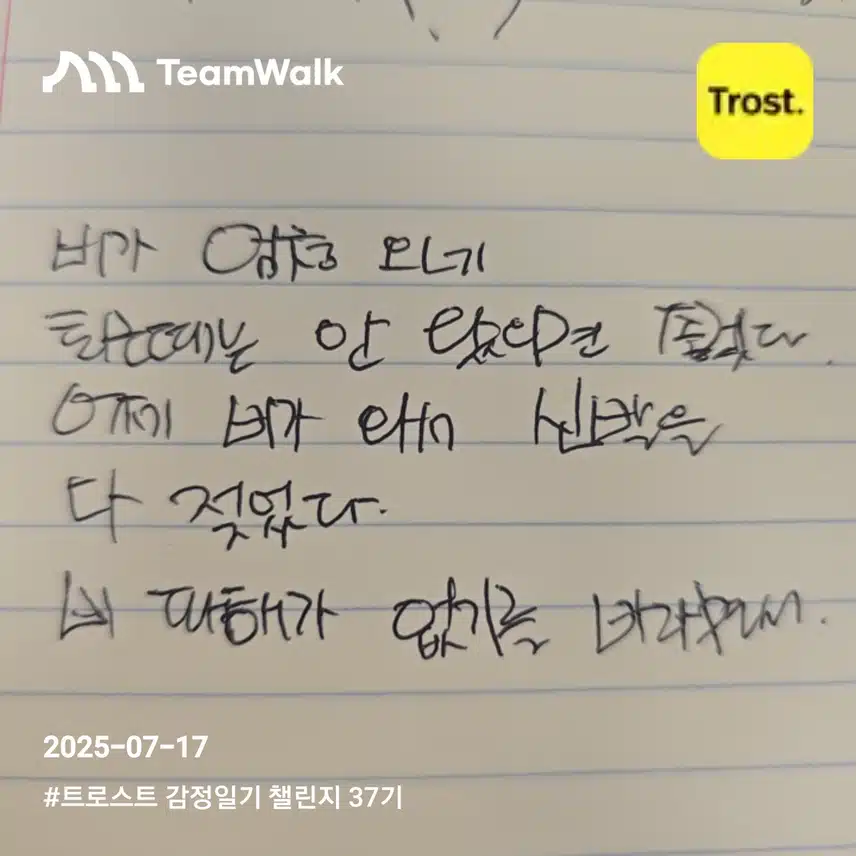 TeamWalk
Trost.
비가 엄청 오기
퇴근때는 안 왔으면 좋겠다.
어제 비가 와서 신발은
다 젖었다.
비 피해가 없기를 바라면서.
2025-07-17
#트로스트 감정일기 챌린지 37기